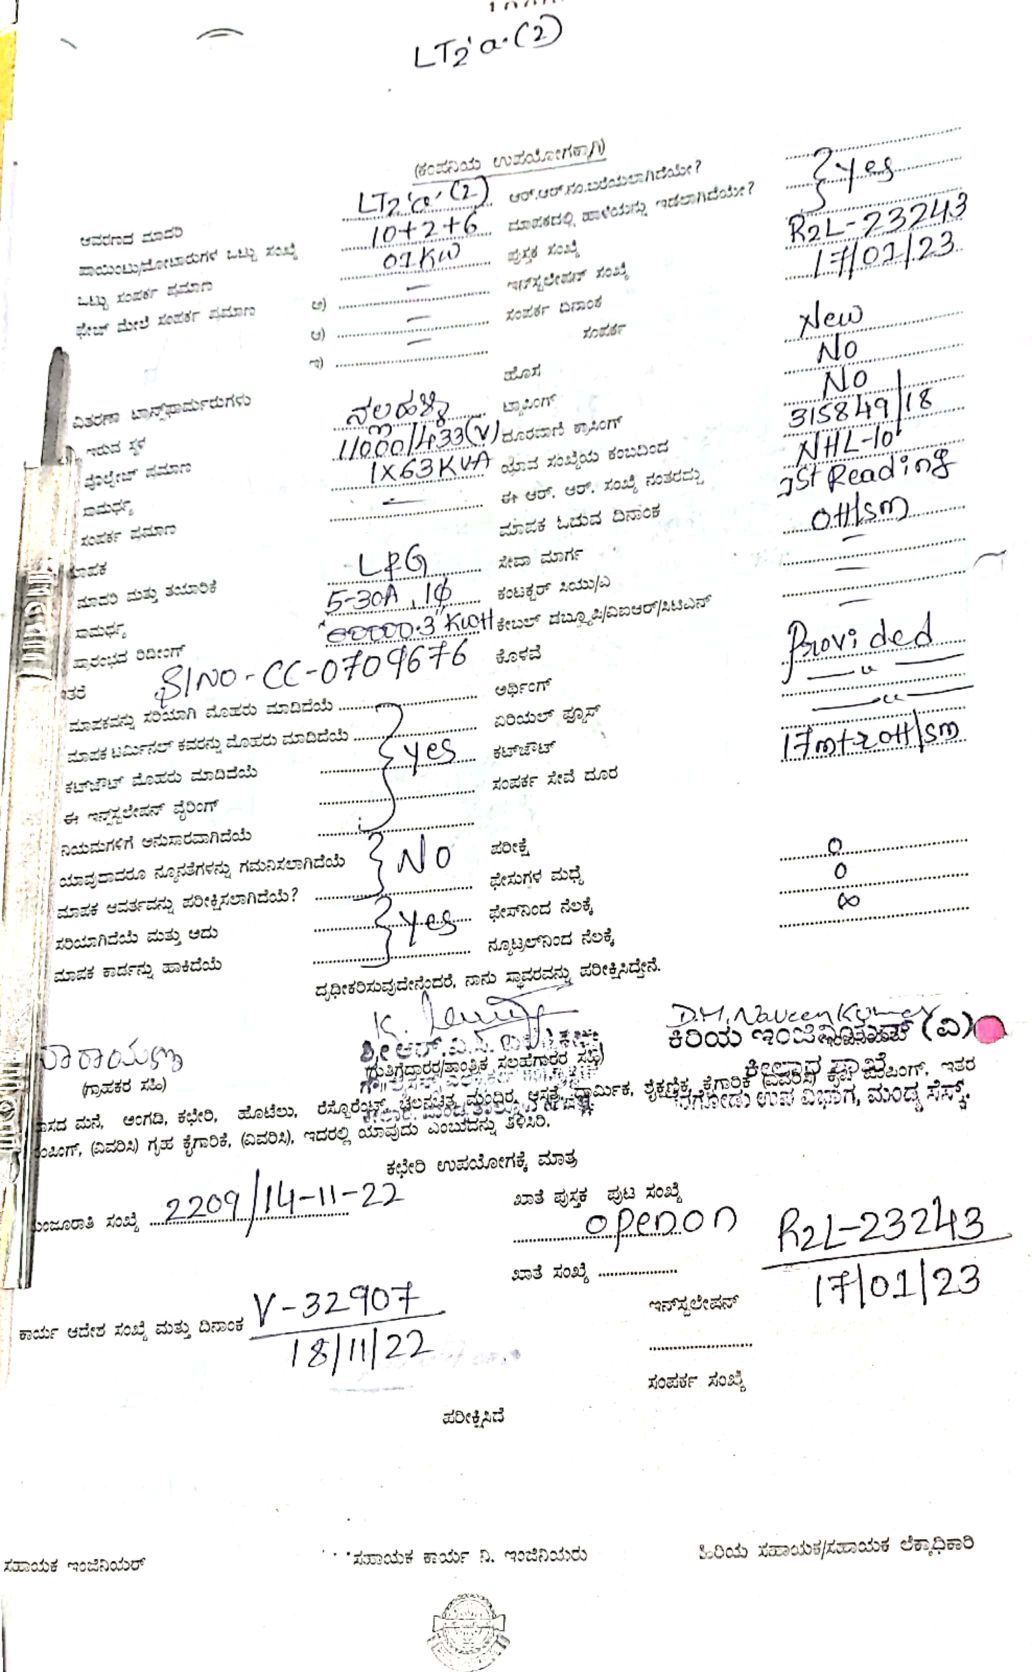 LT2'a.(2)
(ಕಂಪನಿಯ ಉಪಯೋಗಕ್ಕಾಗಿ)
ಆವರಣದ ಮಾದರಿ LT2'a'(2) ಆರ್.ಆರ್.ನಂ.ಬರೆಯಲಾಗಿದೆಯೇ? Yes
ಪಾಯಿಂಟ್ಸು/ಮೋಟಾರುಗಳ ಒಟ್ಟು ಸಂಖ್ಯೆ 10+2+6 ಮಾಪಕದಲ್ಲಿ ಹಾಳೆಯನ್ನು ಇಡಲಾಗಿದೆಯೇ?
ಒಟ್ಟು ಸಂಪರ್ಕ ಪ್ರಮಾಣ 01KW ಪುಸ್ತಕ ಸಂಖ್ಯೆ
ಫೇಜ್ ಮೇಲೆ ಸಂಪರ್ಕ ಪ್ರಮಾಣ ಅ) — ಇನ್‌ಸ್ಟಲೇಷನ್ ಸಂಖ್ಯೆ R2L-23243
ಆ) — ಸಂಪರ್ಕ ದಿನಾಂಕ 17/01/23
ಇ) — ಸಂಪರ್ಕ
ಹೊಸ New
ವಿತರಣಾ ಟ್ರಾನ್ಸ್‌ಫಾರ್ಮರುಗಳು ಟ್ಯಾಪಿಂಗ್ No
ಇರುವ ಸ್ಥಳ ನಲ್ಲಹಳ್ಳಿ ದೂರವಾಣಿ ಕ್ರಾಸಿಂಗ್ No
ವೊಲ್ಟೇಜ್ ಪ್ರಮಾಣ 11000/433(V) ಯಾವ ಸಂಖ್ಯೆಯ ಕಂಬದಿಂದ 315849/18
ಸಾಮರ್ಥ್ಯ 1X63KVA ಈ ಆರ್. ಆರ್. ಸಂಖ್ಯೆ ನಂತರದ್ದು NHL-10
ಸಂಪರ್ಕ ಪ್ರಮಾಣ — ಮಾಪಕ ಓದುವ ದಿನಾಂಕ 1st Reading
ಮಾಪಕ ಸೇವಾ ಮಾರ್ಗ OH/SM
ಮಾದರಿ ಮತ್ತು ತಯಾರಿಕೆ L&G ಕಂಡಕ್ಟರ್ ಸಿಯು/ಎ —
ಸಾಮರ್ಥ್ಯ 5-30A, 1ϕ ಕೇಬಲ್ ಡಬ್ಲ್ಯೂಪಿ/ವಿಐಆರ್/ಸಿಟಿಎಸ್ —
ಪ್ರಾರಂಭದ ರಿಡೀಂಗ್ "00000.3" KWH ಕೊಳವೆ —
ಇತರೆ Sl NO-CC-0709676 ಅರ್ಥಿಂಗ್ Provided
ಮಾಪಕವನ್ನು ಸರಿಯಾಗಿ ಮೊಹರು ಮಾಡಿದೆಯೆ ಏರಿಯಲ್ ಫ್ಯೂಸ್ — " —
ಮಾಪಕ ಟರ್ಮಿನಲ್ ಕವರನ್ನು ಮೊಹರು ಮಾಡಿದೆಯೆ Yes ಕಟ್‌ಔಟ್ — " —
ಕಟ್‌ಔಟ್ ಮೊಹರು ಮಾಡಿದೆಯೆ ಸಂಪರ್ಕ ಸೇವೆ ದೂರ 17mtr OH/SM
ಈ ಇನ್‌ಸ್ಟಲೇಷನ್ ವೈರಿಂಗ್
ನಿಯಮಗಳಿಗೆ ಅನುಸಾರವಾಗಿದೆಯೆ
ಯಾವುದಾದರೂ ನ್ಯೂನತೆಗಳನ್ನು ಗಮನಿಸಲಾಗಿದೆಯೆ No ಪರೀಕ್ಷೆ
ಮಾಪಕ ಆವರ್ತವನ್ನು ಪರೀಕ್ಷಿಸಲಾಗಿದೆಯೆ? ಫೇಸುಗಳ ಮಧ್ಯೆ 0
ಸರಿಯಾಗಿದೆಯೆ ಮತ್ತು ಅದು Yes ಫೇಸ್‌ನಿಂದ ನೆಲಕ್ಕೆ 0
ಮಾಪಕ ಕಾರ್ಡನ್ನು ಹಾಕಿದೆಯೆ ನ್ಯೂಟ್ರಲ್‌ನಿಂದ ನೆಲಕ್ಕೆ ∞
ದೃಢೀಕರಿಸುವುದೇನೆಂದರೆ, ನಾನು ಸ್ಥಾವರವನ್ನು ಪರೀಕ್ಷಿಸಿದ್ದೇನೆ.
D.M. Naveen Kumar
ನಾರಾಯಣ ಕಿರಿಯ ಇಂಜಿನಿಯರ್ (ವಿ)
(ಗ್ರಾಹಕರ ಸಹಿ) (ಗುತ್ತಿಗೆದಾರರ/ತಾಂತ್ರಿಕ ಸಲಹೆಗಾರರ ಸಹಿ) ಕೀಲಾರ ಶಾಖೆ
ಉಪ ವಿಭಾಗ, ಮಂಡ್ಯ ಸೆಸ್ಕ್.
ವಾಸದ ಮನೆ, ಅಂಗಡಿ, ಕಛೇರಿ, ಹೊಟೆಲು, ರೆಸ್ಟೊರೆಂಟ್, ಚಲನಚಿತ್ರ ಮಂದಿರ, ಆಸ್ಪತ್ರೆ, ಧಾರ್ಮಿಕ, ಶೈಕ್ಷಣಿಕ, ಕೈಗಾರಿಕೆ (ವಿವರಿಸಿ) ಪಂಪಿಂಗ್, ಇತರ
ಪಂಪಿಂಗ್, (ವಿವರಿಸಿ) ಗೃಹ ಕೈಗಾರಿಕೆ, (ವಿವರಿಸಿ), ಇದರಲ್ಲಿ ಯಾವುದು ಎಂಬುದನ್ನು ತಿಳಿಸಿರಿ.
ಕಛೇರಿ ಉಪಯೋಗಕ್ಕೆ ಮಾತ್ರ
ಮಂಜೂರಾತಿ ಸಂಖ್ಯೆ 2209/14-11-22 ಖಾತೆ ಪುಸ್ತಕ ಪುಟ ಸಂಖ್ಯೆ
openon R2L-23243
ಖಾತೆ ಸಂಖ್ಯೆ 17/01/23
ಕಾರ್ಯ ಆದೇಶ ಸಂಖ್ಯೆ ಮತ್ತು ದಿನಾಂಕ V-32907 ಇನ್‌ಸ್ಟಲೇಷನ್
18/11/22
ಸಂಪರ್ಕ ಸಂಖ್ಯೆ
ಪರೀಕ್ಷಿಸಿದೆ
ಸಹಾಯಕ ಇಂಜಿನಿಯರ್ ಸಹಾಯಕ ಕಾರ್ಯ ನಿ. ಇಂಜಿನಿಯರು ಹಿರಿಯ ಸಹಾಯಕ/ಸಹಾಯಕ ಲೆಕ್ಕಾಧಿಕಾರಿ